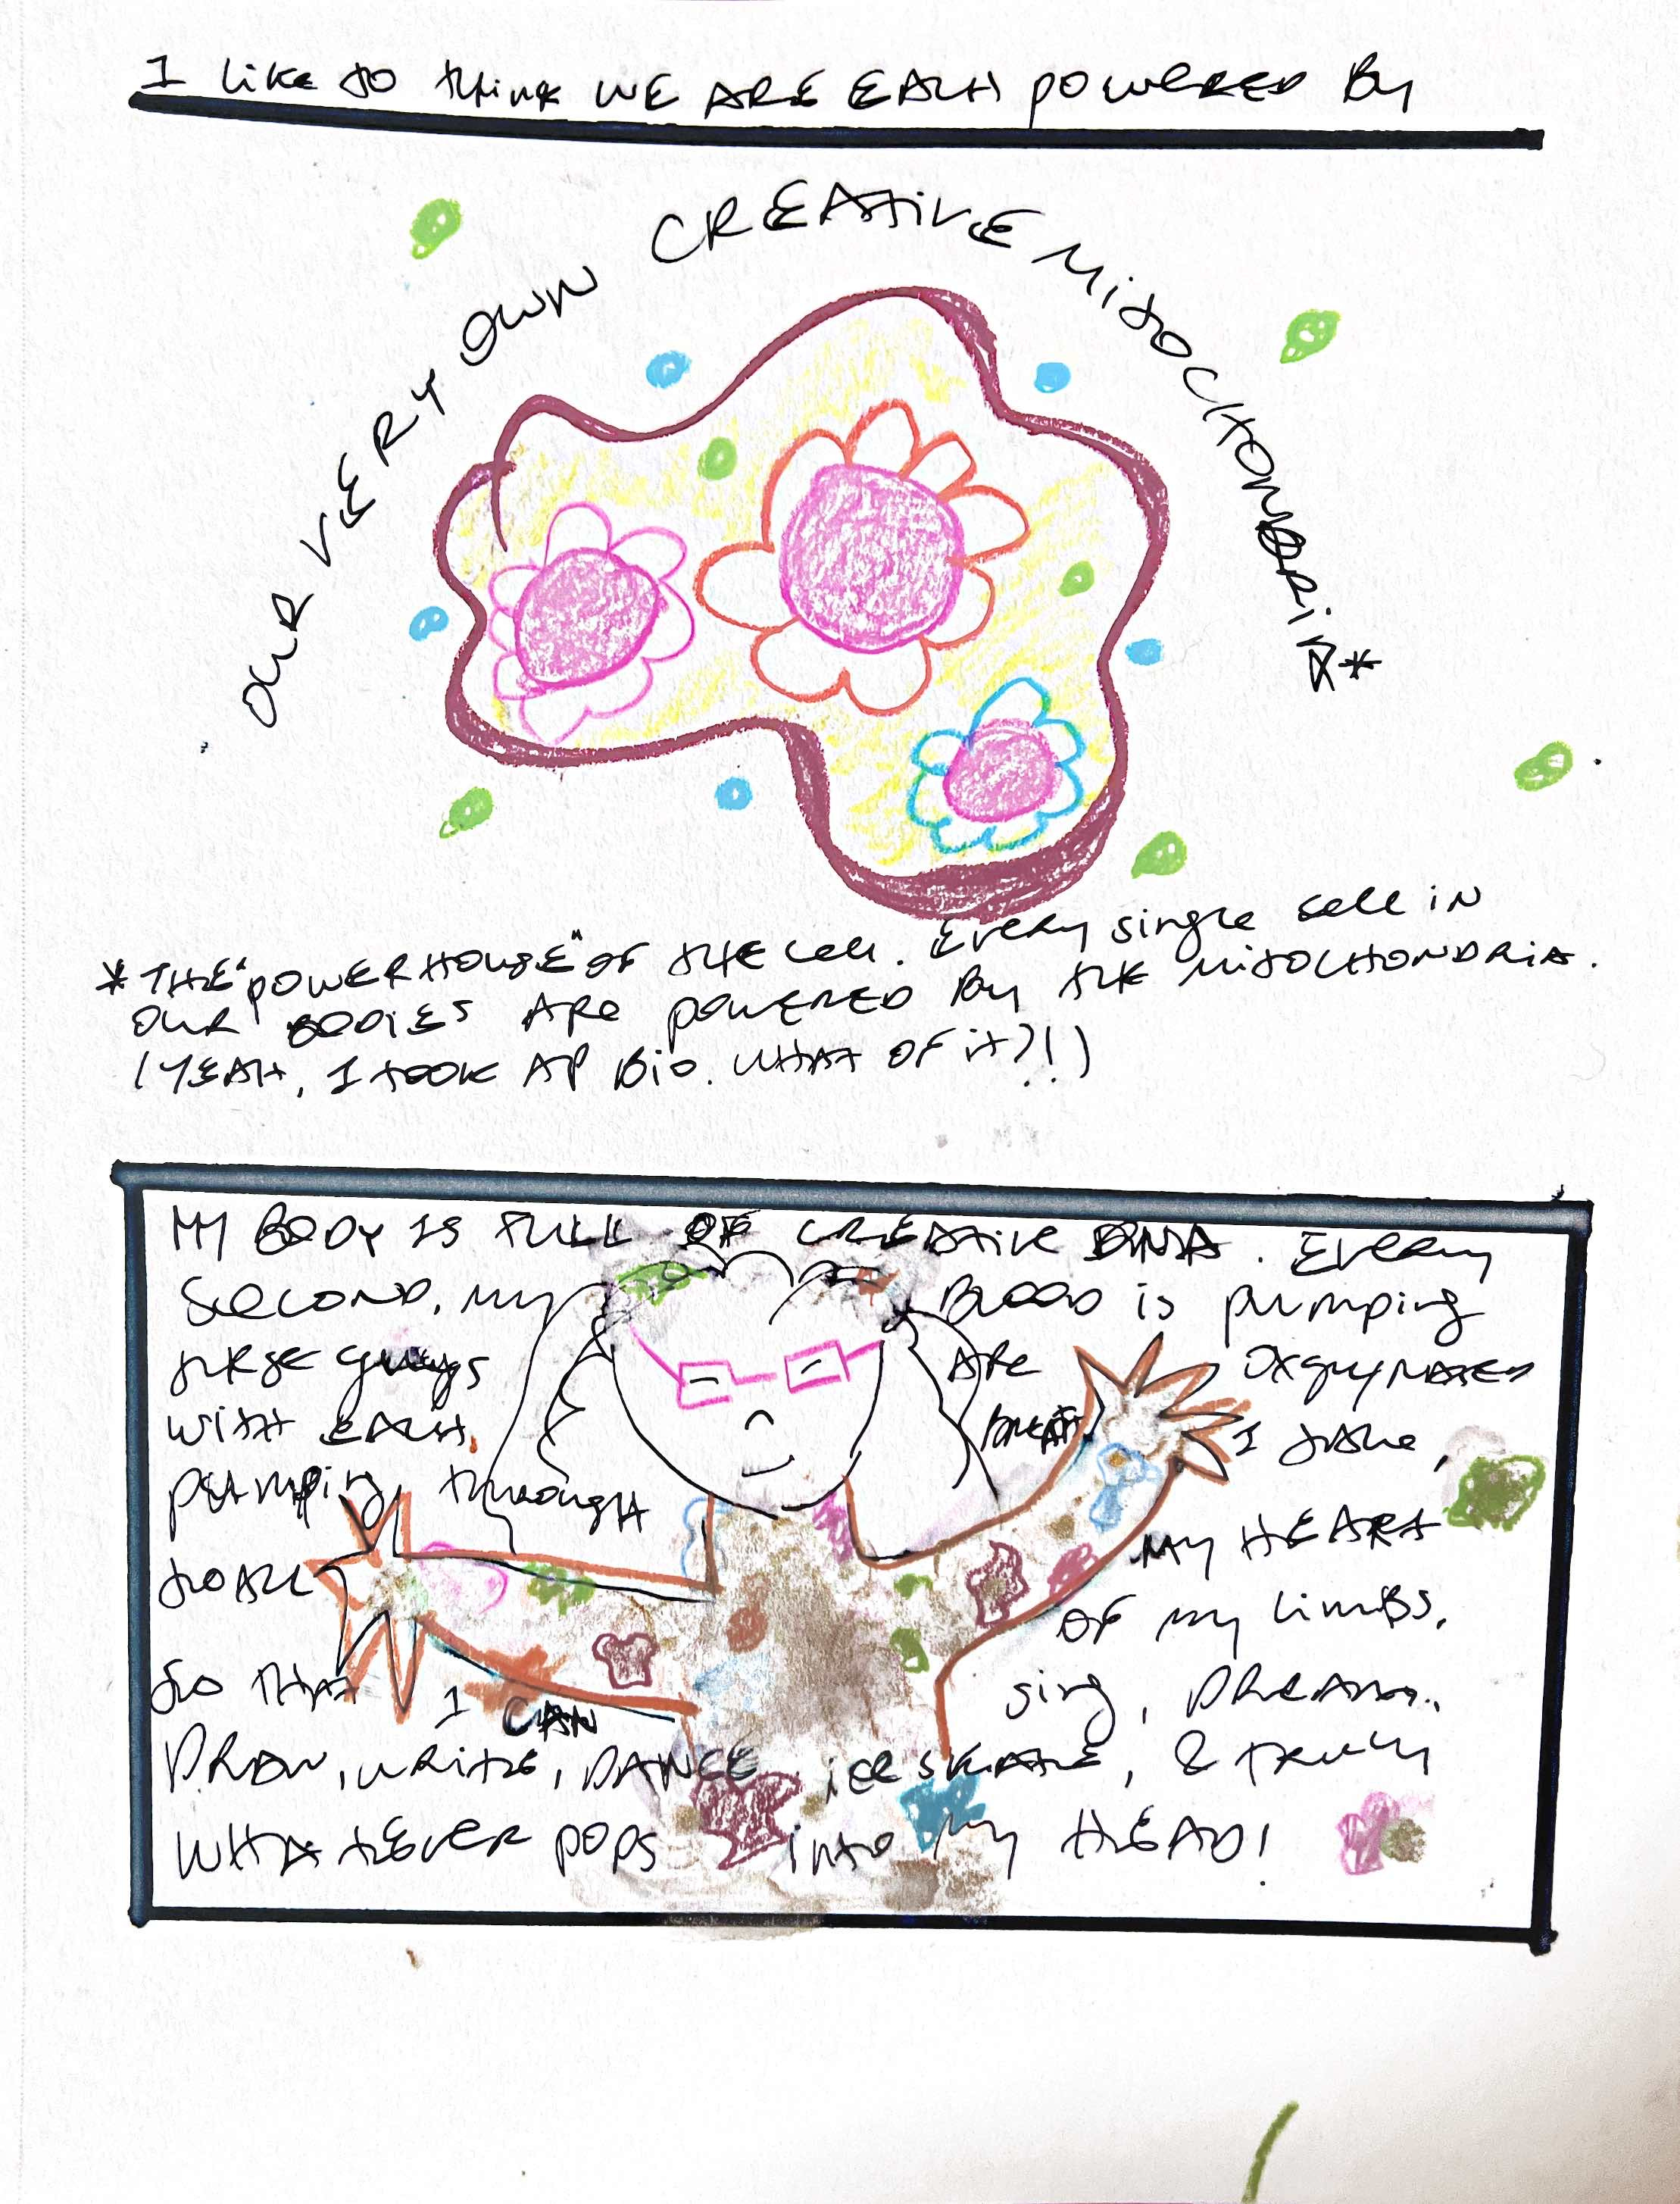 I like to think WE ARE EACH powered By
OUR VERY OWN CREATIVE MITOCHONDRIA*
* THE "POWERHOUSE" OF THE cell. Every single cell in
OUR BODIES ARE POWERED By THE MITOCHONDRIA.
(YEAH, I took AP Bio. WHAT OF it?!)
MY BODY IS FULL OF CREATIVE DNA. Every
second, my Blood is pumping
these guys ARE oxgynated
WITH EACH BREATH I take,
pumping through MY HEART
to ALL OF my limbs,
so THAT I CAN sing, DREAM,
DRAW, WRITE, DANCE, ice skate, & truly
WHATEVER pops into my HEAD!